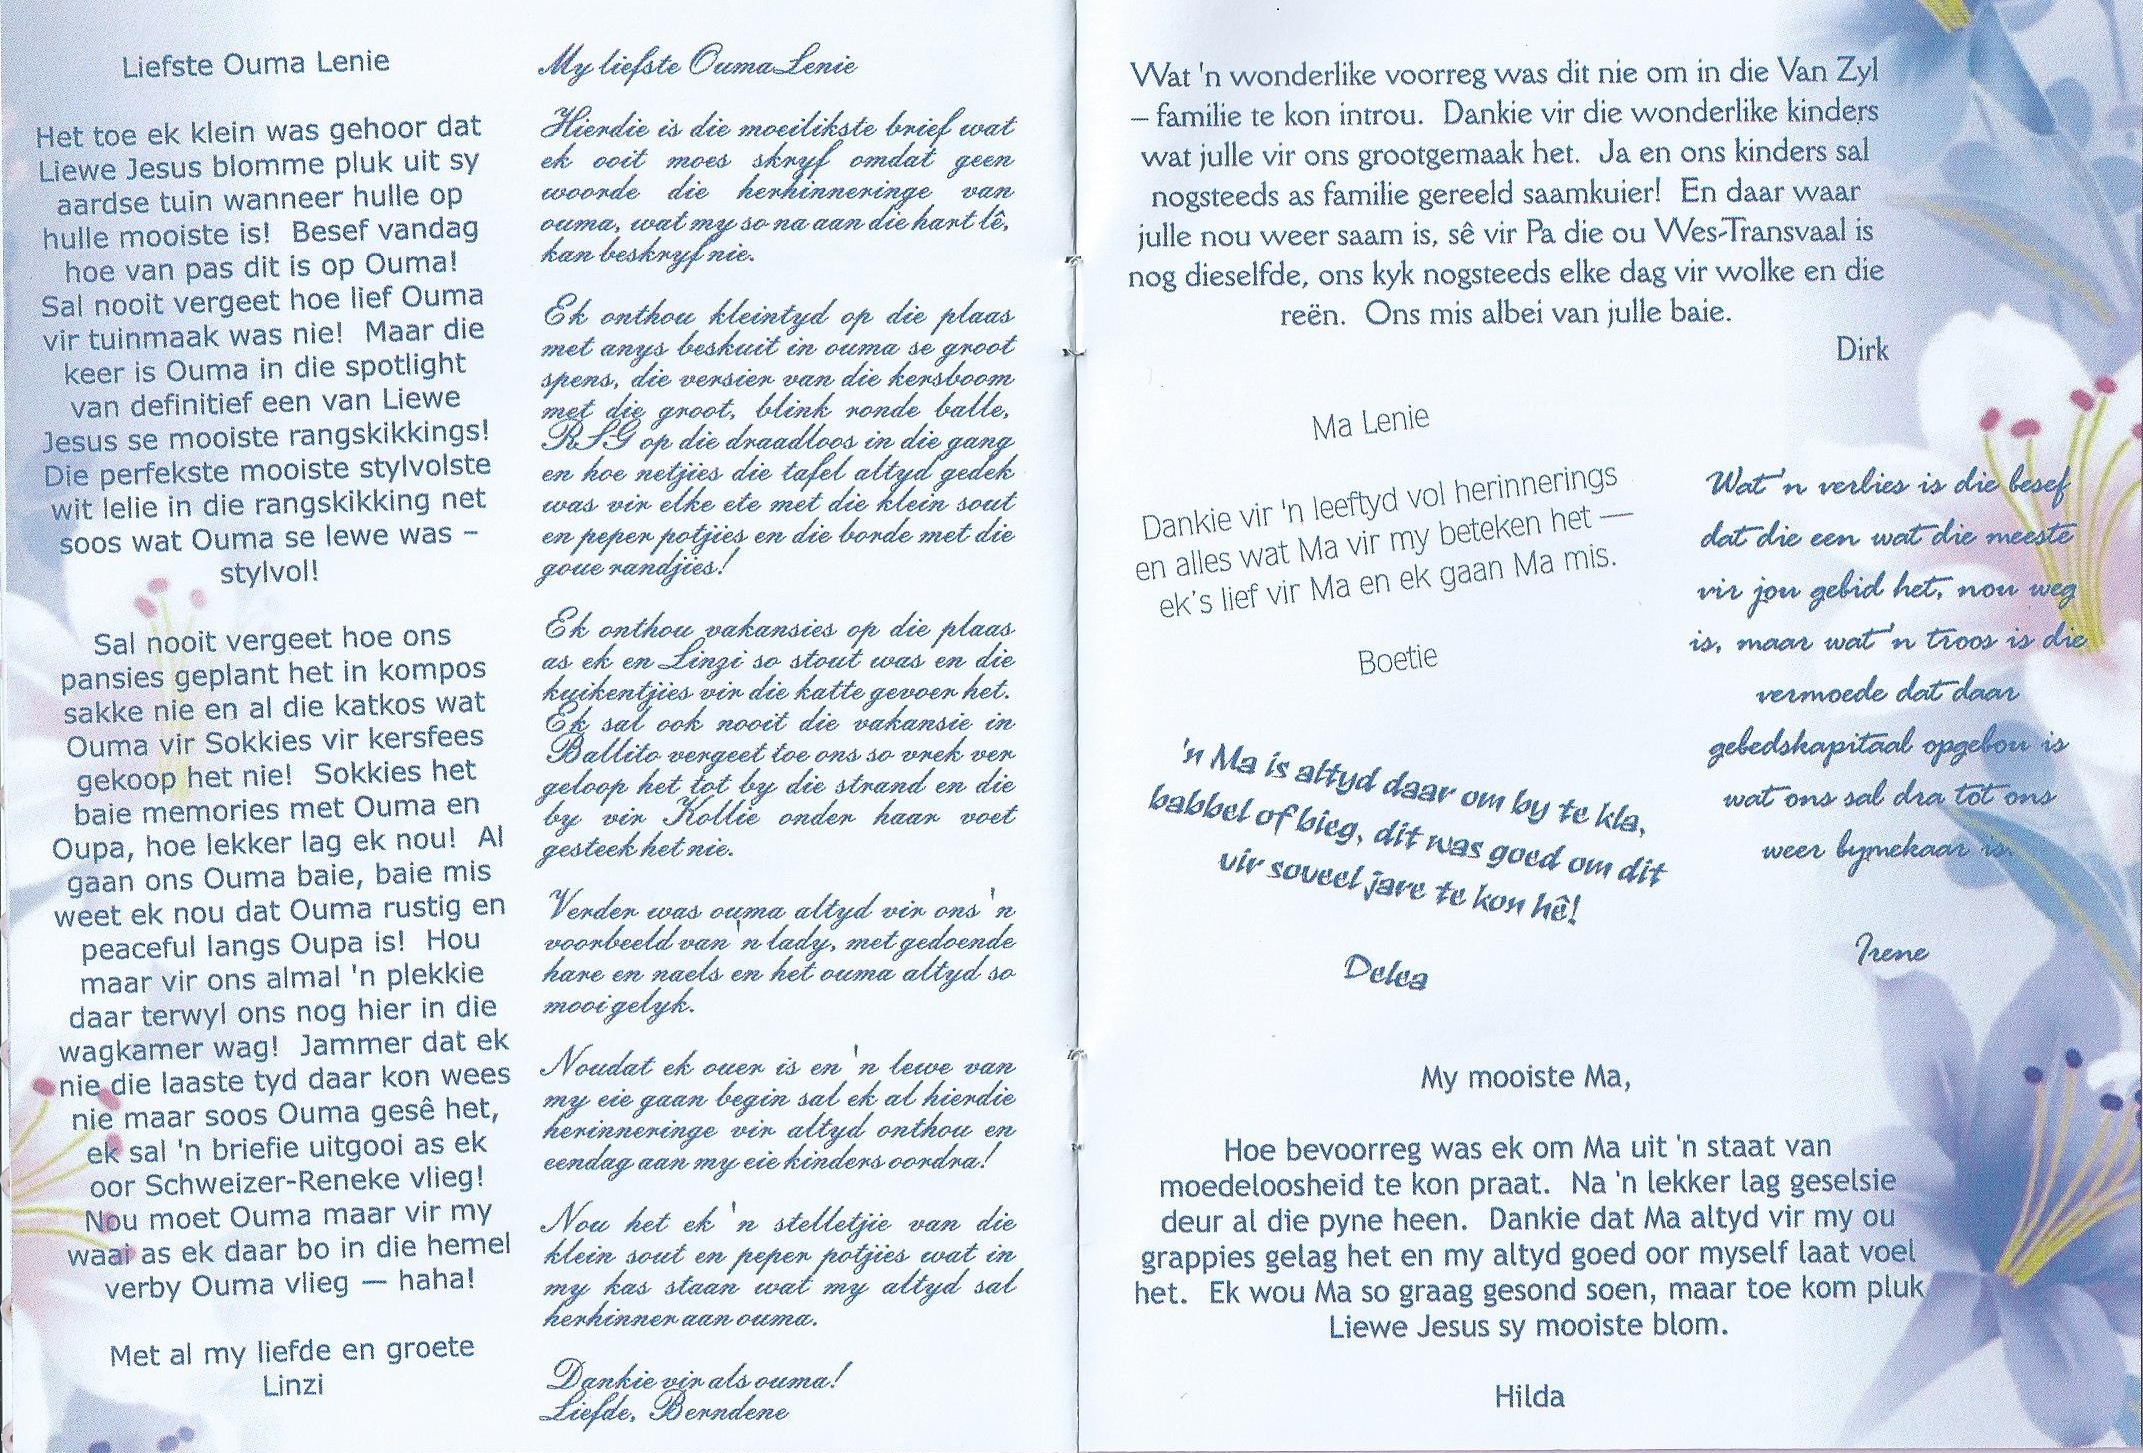 Liefste Ouma Lenie
Het toe ek klein was gehoor dat
Liewe Jesus blomme pluk uit sy
aardse tuin wanneer hulle op
hulle mooiste is!  Besef vandag
hoe van pas dit is op Ouma!
Sal nooit vergeet hoe lief Ouma
vir tuinmaak was nie!  Maar die
keer is Ouma in die spotlight
van definitief een van Liewe
Jesus se mooiste rangskikkings!
Die perfekste mooiste stylvolste
wit lelie in die rangskikking net
soos wat Ouma se lewe was –
stylvol!
Sal nooit vergeet hoe ons
pansies geplant het in kompos
sakke nie en al die katkos wat
Ouma vir Sokkies vir kersfees
gekoop het nie!  Sokkies het
baie memories met Ouma en
Oupa, hoe lekker lag ek nou!  Al
gaan ons Ouma baie, baie mis
weet ek nou dat Ouma rustig en
peaceful langs Oupa is!  Hou
maar vir ons almal 'n plekkie
daar terwyl ons nog hier in die
wagkamer wag!  Jammer dat ek
nie die laaste tyd daar kon wees
nie maar soos Ouma gesê het,
ek sal 'n briefie uitgooi as ek
oor Schweizer-Reneke vlieg!
Nou moet Ouma maar vir my
waai as ek daar bo in die hemel
verby Ouma vlieg — haha!
Met al my liefde en groete
Linzi
My liefste Ouma Lenie
Hierdie is die moeilikste brief wat
ek ooit moes skryf omdat geen
woorde die herhinneringe van
ouma, wat my so na aan die hart lê,
kan beskryf nie.
Ek onthou kleintyd op die plaas
met anys beskuit in ouma se groot
spens, die versier van die kersboom
met die groot, blink ronde balle,
RSG op die draadloos in die gang
en hoe netjies die tafel altyd gedek
was vir elke ete met die klein sout
en peper potjies en die borde met die
goue randjies!
Ek onthou vakansies op die plaas
as ek en Linzi so stout was en die
kuikentjies vir die katte gevoer het.
Ek sal ook nooit die vakansie in
Ballito vergeet toe ons so vrek ver
geloop het tot by die strand en die
by vir Kollie onder haar voet
gesteek het nie.
Verder was ouma altyd vir ons 'n
voorbeeld van 'n lady, met gedoende
hare en naels en het ouma altyd so
mooi gelyk.
Noudat ek ouer is en 'n lewe van
my eie gaan begin sal ek al hierdie
herinneringe vir altyd onthou en
eendag aan my eie kinders oordra!
Nou het ek 'n stelletjie van die
klein sout en peper potjies wat in
my kas staan wat my altyd sal
herhinner aan ouma.
Dankie vir als ouma!
Liefde, Berndene
Wat 'n wonderlike voorreg was dit nie om in die Van Zyl
– familie te kon introu.  Dankie vir die wonderlike kinders
wat julle vir ons grootgemaak het.  Ja en ons kinders sal
nogsteeds as familie gereeld saamkuier!  En daar waar
julle nou weer saam is, sê vir Pa die ou Wes-Transvaal is
nog dieselfde, ons kyk nogsteeds elke dag vir wolke en die
reën.  Ons mis albei van julle baie.
Dirk
Ma Lenie
Dankie vir 'n leeftyd vol herinnerings
en alles wat Ma vir my beteken het —
ek's lief vir Ma en ek gaan Ma mis.
Boetie
Wat 'n verlies is die besef
dat die een wat die meeste
vir jou gebid het, nou weg
is, maar wat 'n troos is die
vermoede dat daar
gebedskapitaal opgebou is
wat ons sal dra tot ons
weer bymekaar is.
Irene
'n Ma is altyd daar om by te kla,
babbel of bieg, dit was goed om dit
vir soveel jare te kon hê!
Delea
My mooiste Ma,
Hoe bevoorreg was ek om Ma uit 'n staat van
moedeloosheid te kon praat.  Na 'n lekker lag geselsie
deur al die pyne heen.  Dankie dat Ma altyd vir my ou
grappies gelag het en my altyd goed oor myself laat voel
het.  Ek wou Ma so graag gesond soen, maar toe kom pluk
Liewe Jesus sy mooiste blom.
Hilda